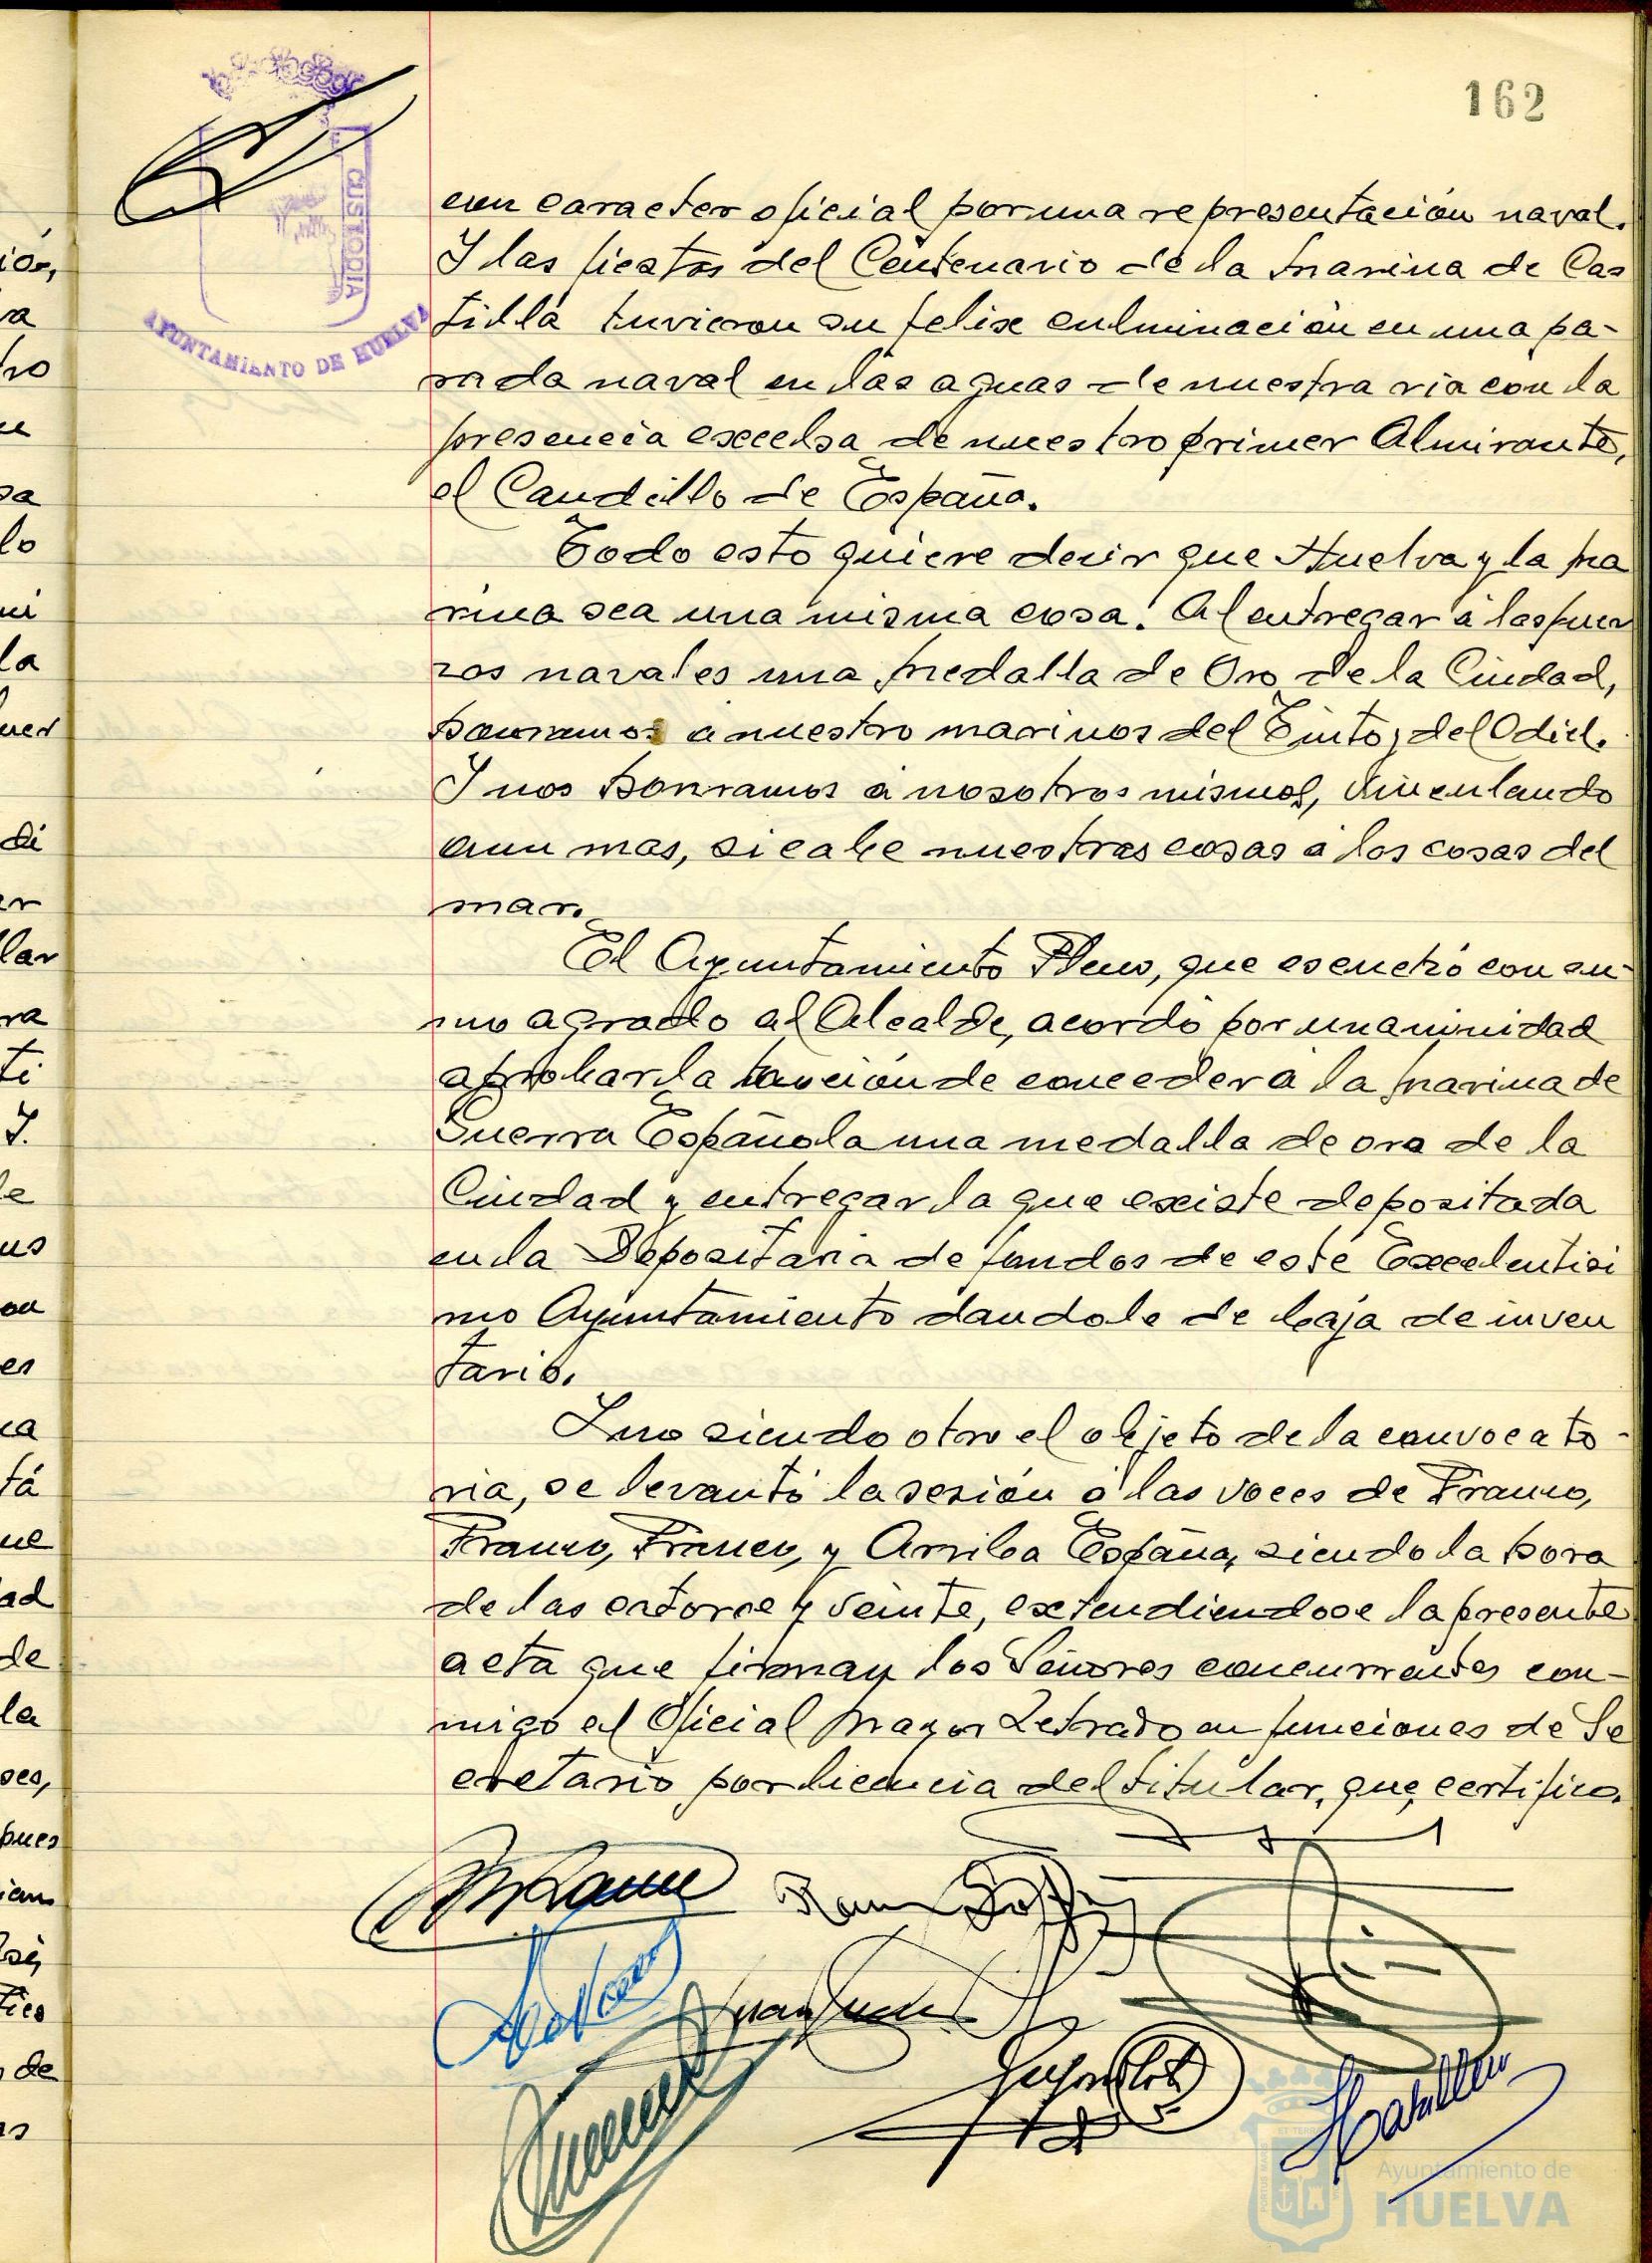 162
CUSTODIA
AYUNTAMIENTO DE HUELVA
con caracter oficial por una representación naval.
Y las fiestas del Centenario de la Marina de Cas
tilla tuvieron su felix culminación en una pa-
rada naval en las aguas de nuestra ria con la
presencia excelsa de nuestro primer Almirante,
el Caudillo de España.
Todo esto quiere decir que Huelva y la Ma
rina sea una misma cosa. Al entregar a las fuer
zas navales una Medalla de Oro de la Ciudad,
honramos a nuestro marinos del Tinto y del Odiel.
Y nos honramos a nosotros mismos, vinculando
aun mas, si cabe nuestras cosas a las cosas del
mar.
El Ayuntamiento Pleno, que escuchó con su-
mo agrado al Alcalde, acordó por unanimidad
aprobar la moción de conceder a la Marina de
Guerra Española una medalla de oro de la
Ciudad y entregar la que existe depositada
en la Depositaria de fondos de este Excelentisi
mo Ayuntamiento dandole de baja de inven
tario.
Y no siendo otro el objeto de la convocato-
ria, se levantó la sesión a las voces de Franco,
Franco, Franco, y Arriba España, siendo la hora
de las catorce y veinte, extendiendose la presente
acta que firman los Señores concurrentes con-
migo el Oficial Mayor Letrado en funciones de Se
cretario por licencia del titular, que certifico.
Ayuntamiento de
HUELVA